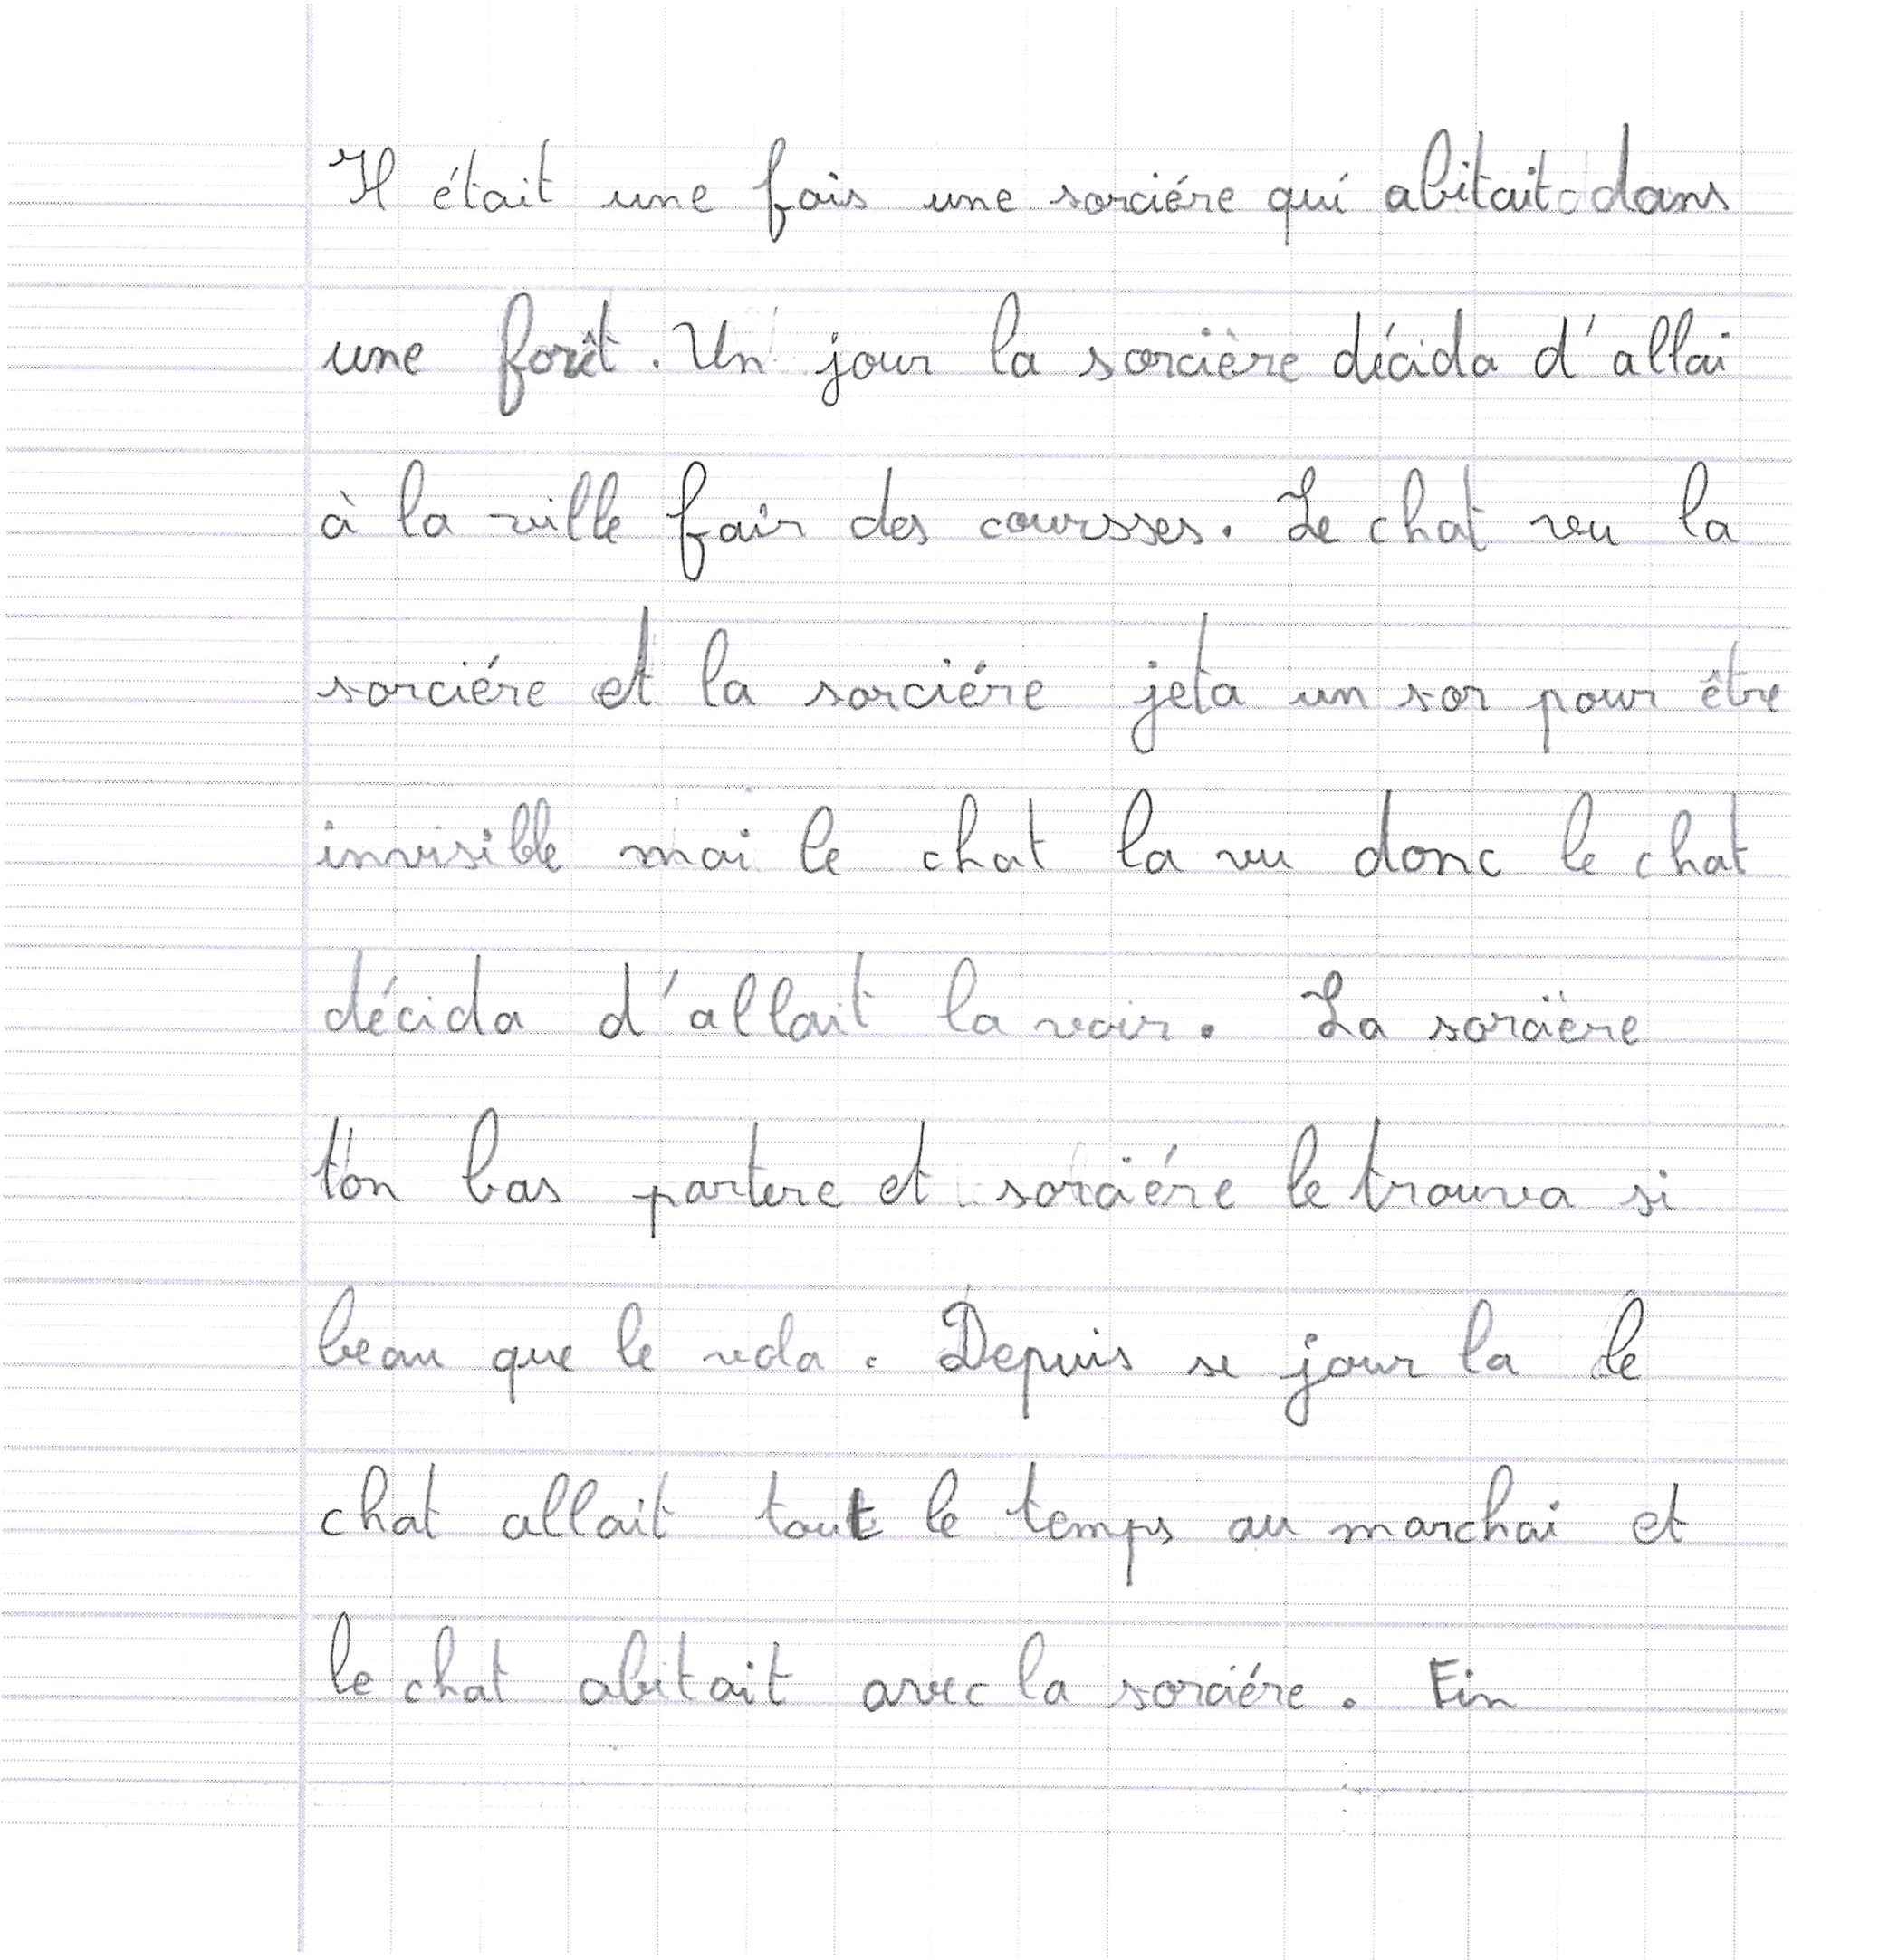 Il était une fois une sorciére qui abitait dans
une forêt. Un jour la sorcière décida d'allai
à la ville fair des coursses. Le chat veu la
sorciére et la sorciére jeta un sor pour être
invisible mai le chat la vu donc le chat
décida d'allait la voir. La sorcière
ton bas partere et sorciére le trouva si
beau que le vola. Depuis se jour la le
chat allait tout le temps au marchai et
le chat abitait avec la sorciére. Fin